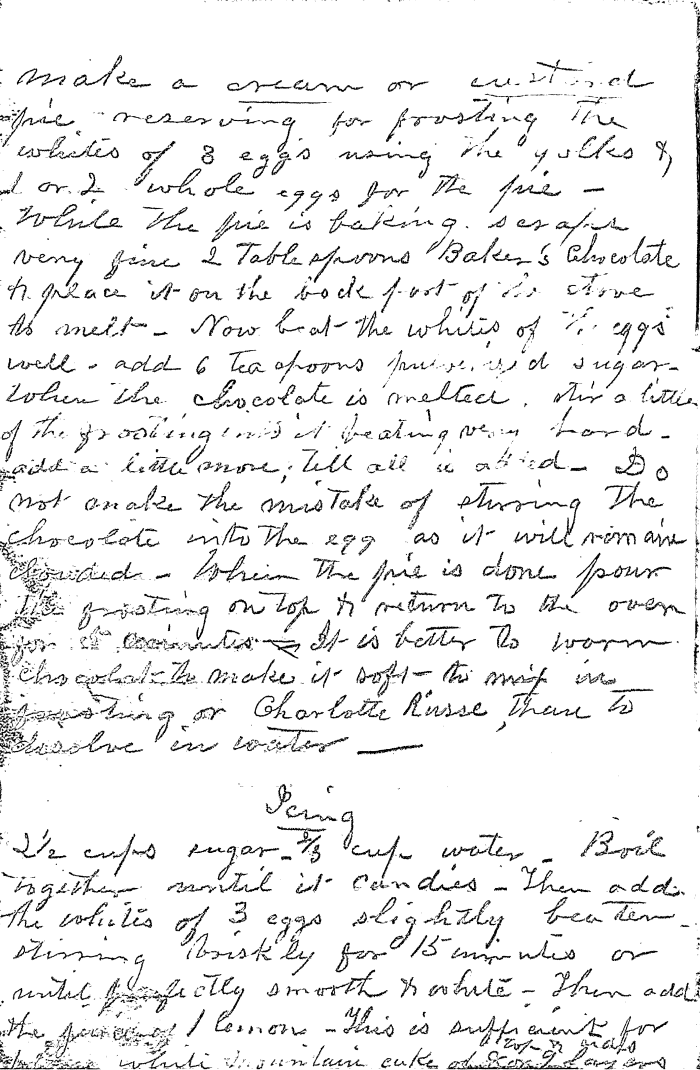 make a cream or custard
pie reserving for frosting the
whites of 3 eggs using the yolks &
1 or 2 whole eggs for the pie -
While the pie is baking. scrape
very fine 2 Tablespoons Baker's Chocolate
& place it on the back part of the stove
to melt - Now beat the whites of the eggs
well - add 6 teaspoons pulverized sugar -
When the chocolate is melted, stir a little
of the frosting into it beating very hard -
add a little more, till all is added - Do
not make the mistake of stirring the
chocolate into the egg as it will remain
clouded - When the pie is done pour
the frosting on top & return to the oven
for minutes - It is better to warm
chocolate to make it soft - to mix in
frosting or Charlotte Russe, than to
dissolve in water —
Icing
2 1/2 cups sugar - 2/3 cup water - Boil
together until it candies - Then add
the whites of 3 eggs slightly beaten -
stirring briskly for 15 minutes or
until perfectly smooth & white - Then add
the juice of 1 lemon - This is sufficient for
top &
white mountain cake of layers